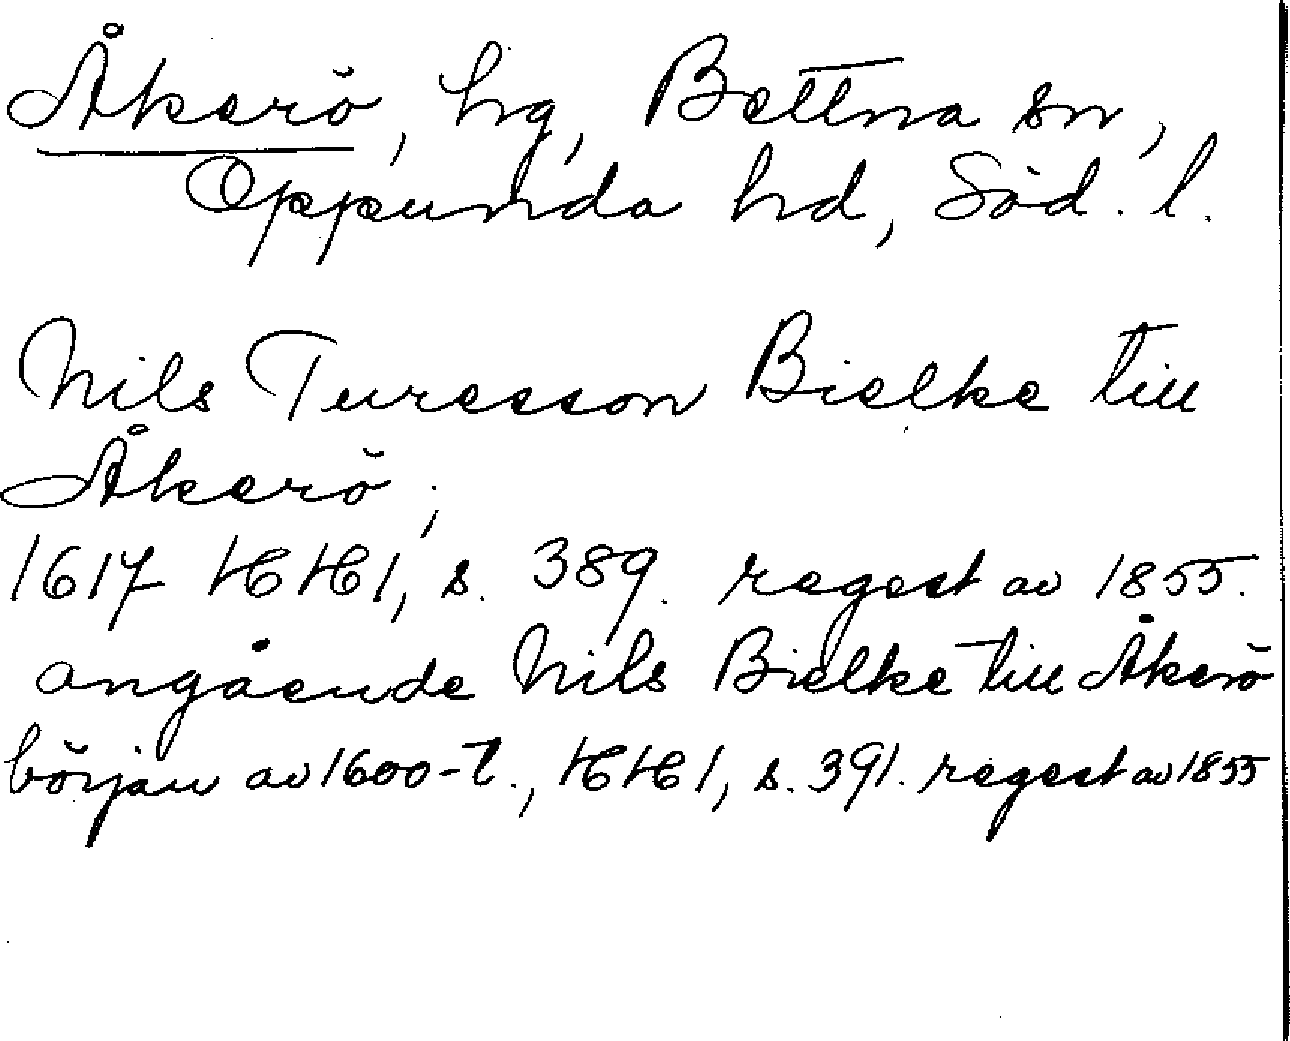 Åkerö, hg, Bettna sn,
Oppunda hd, Söd. l.
Nils Turesson Bielke till
Åkerö;
1617 HH1, s. 389. regest av 1855.
angående Nils Bielke till Åkerö
början av 1600-t., HH1, s. 391. regest av 1855